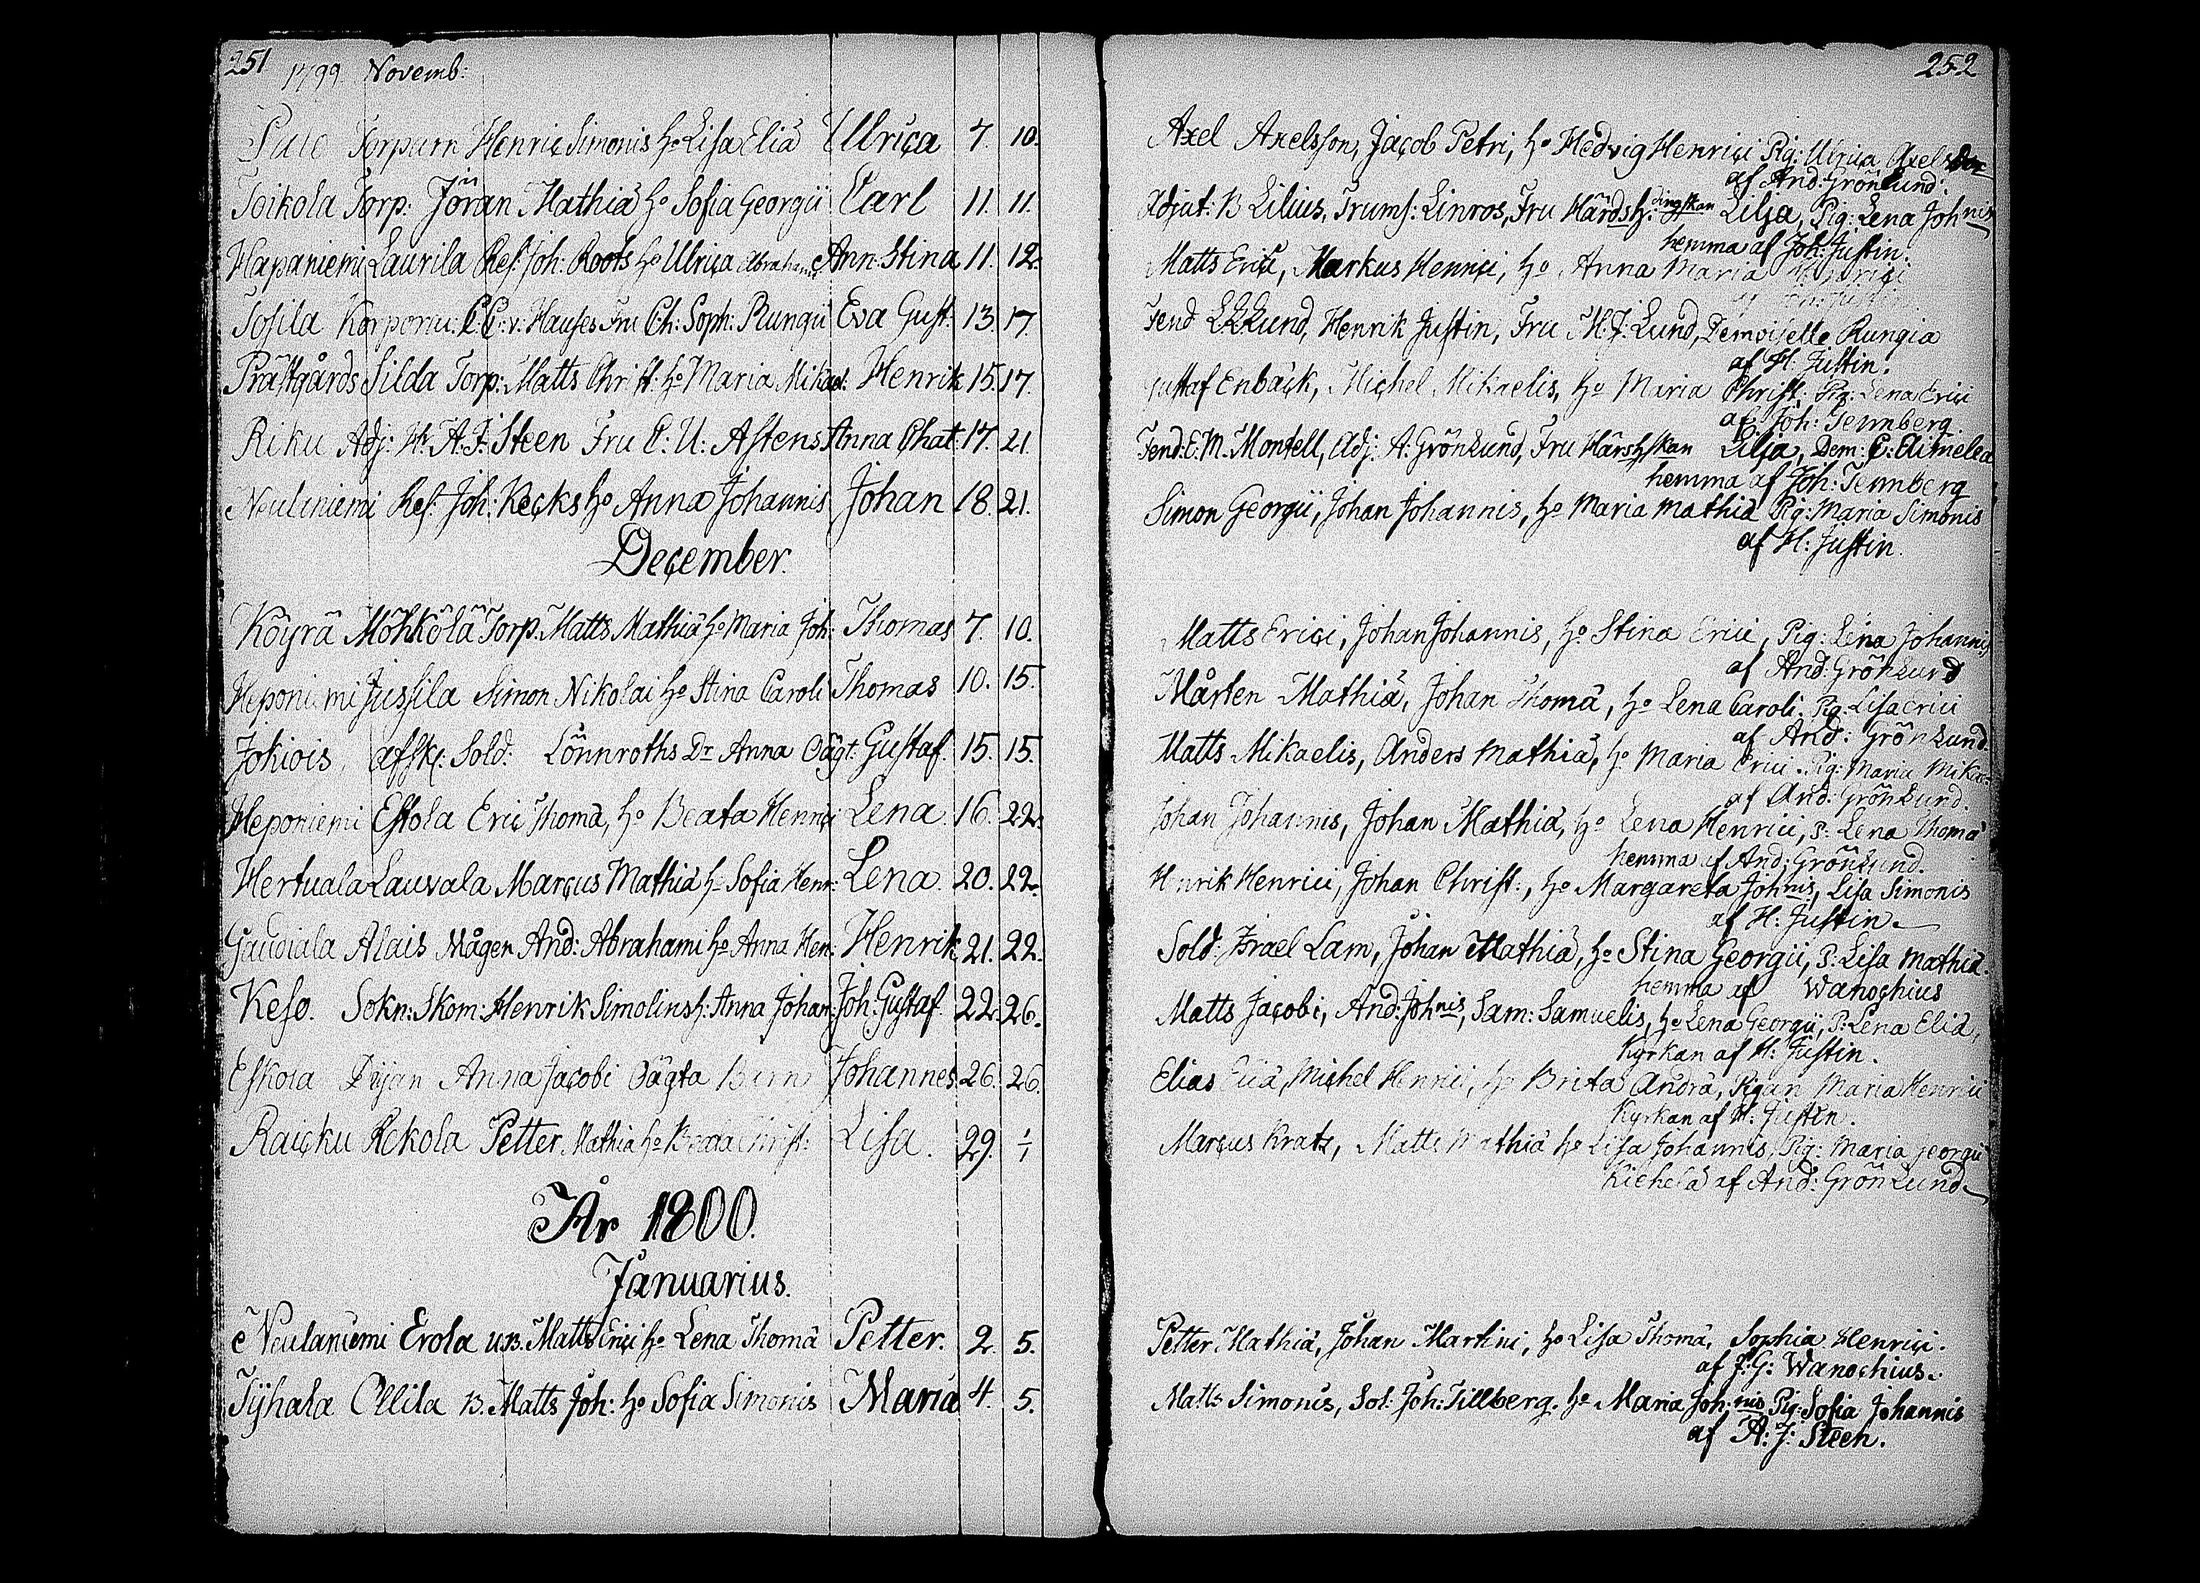 251 1799 Novemb:
Torparn Henric Simonis ho Lisa Eliä Ulrica 7. 10.
Toikola Torp: Jöran Mathiä ho Sofia Georgii Carl 11. 11.
Hapaniemi Laurila Ref: Joh: Roots ho Ulrica Abrahami Ann: Stina 11. 12.
Tosila C: C: v: Hauses Fru Ch: Soph: Rungii Eva Gust: 13 17.
Prästgårds Silda Torp: Matts Christ: ho Maria Mikael: Henrik 15. 17.
Riku Adj: H: A: J: Steen Fru C: U: Astens Anna Chat: 17. 21
Neuliniemi Ref: Joh: Kecks ho Anna Johannis Johan 18. 21.
December.
Köyrä Möhkölä Torp. Matts Mathiä ho Maria Joh: Thomas 7. 10.
Heponiemi Jussila Simon Nikolai ho Stina Caroli Thomas 10. 15.
Jokiois, afsk: Sold: Lönnroths Dr Anna Oägt: Gustaf. 15. 15.
Heponiemi Estola Eric Thomä, ho Beata Henrici Lena. 16. 22.
Hertuala Lauvala Marcus Mathiä h- Sofia Henr: Lena. 20. 22.
Alais Mågen And: Abrahami ho Anna Hen: Henrik 21. 22.
Keso. Sokn: Skom: Henrik Simolins h: Anna Johan: Joh: Gustaf. 22. 26.
Eskola Pijan Anna Jacobi Oägta Barn Johannes 26. 26.
Raicku Rekola Petter Mathiä ho Beata Christ: Lisa. 29. 1/1
År 1800.
Januarius.
Neulaniemi Erola Matts Erici ho Lena Thomä Petter. 2. 5.
Tyhala Ollila B. Matts Joh: ho Sofia Simonis Maria 4. 5.
252
Axel Axelsson, Jacob Petri, ho Hedvig Henrici Pig: Ulrica Axels
af And: Grönlund.
Adjut: B Lilius, Trums: Linros, Fru Lilja, Pig: Lena Johnis
hemma af Joh: Justin.
Matts Erici, Markus Henrici, ho Anna Maria
Fend Lund, Henrik Justin, Fru H. J: Lund, Demoiselle Rungia
af H: Justin.
Gustaf Enbäck, Michel Mikaelis, ho Maria Christ: Pig: Lena Erici
af: Joh: Temnberg.
Fend: E. M. Montell, Adj: A: Grönlund, Fru Lilja, Dem: C: Aimelea
hemma af Joh: Temnberg
Simon Georgii, Johan Johannis, ho Maria Mathiä Pig: Maria Simonis
af H: Justin.
Matts Erici, Johan Johannis, ho Stina Erici, Pig: Lena Johannis
af And: Grönlund
Mårten Mathiä, Johan Thomä, ho Lena Caroli. Pig: Lisa Erici
af And: Grönlund.
Matts Mikaelis, Anders Mathiä, ho Maria Erici. Pig: Maria Mika:
af And: Grönlund.
Johan Johannis, Johan Mathiä, ho Lena Henrici, P: Lena Thomä
hemma af And: Grönlund.
Henrik Henrici, Johan Christ:, ho Margareta Johnis, Lisa Simonis
af H: Justin.
Sold: Israel Lam, Johan Mathiä, ho Stina Georgii, P: Lisa Mathiä.
hemma af Wanochius
Matts Jacobi, And: Johnis, Sam: Samuelis, ho Lena Georgii, P: Lena Eliä,
Kyrkan af H: Justin.
Elias Eliä, Michel Henrici, ho Brita Andrä, Pigan Maria Henrici
Kyrkan af H: Justin.
Marcus Krats, Matts Mathiä ho Lisa Johannis, Pig: Maria Georgii
af And: Grönlund
Petter Mathiä, Johan Martini, ho Lisa Thomä, Sophia Henrici.
af J. G: Wanochius.
Matts Simonis, Sol: Joh: Tillberg. ho Maria Joh:nis Pig: Sofia Johannis
af A: J: Steen.